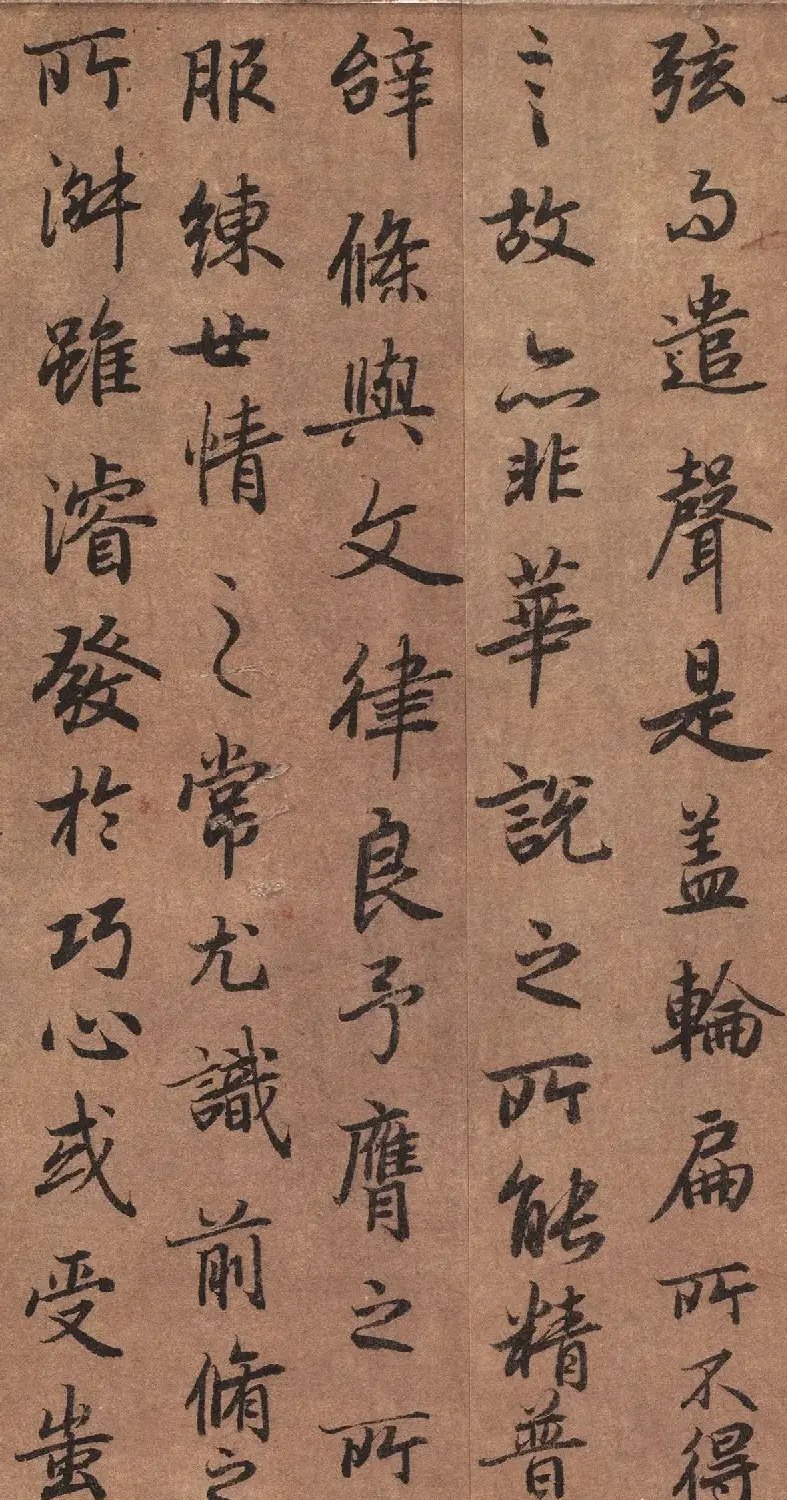 弦而遣聲是盖輪扁所不得
言故亦非華說之所能精普
辭條與文律良予膺之所
服練世情之常尤識前脩之
所淑雖濬發於巧心或受蚩